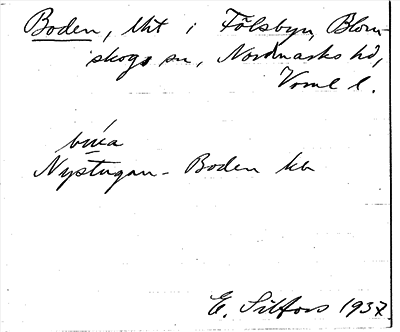 Boden, lht i Fölsbyn, Blom-
skogs sn, Nordmarks hd,
Vrml l.
búa
Nystugan - Boden kb
E. Silfors 1937